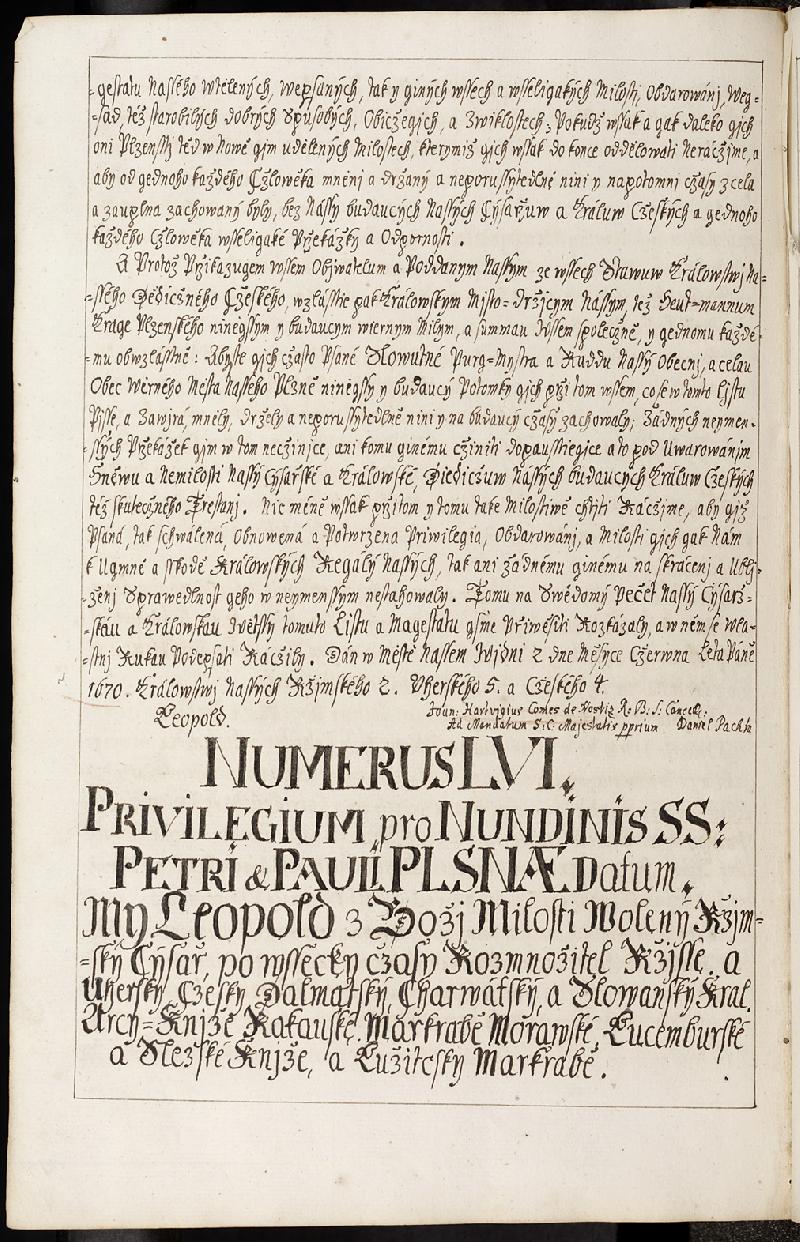 -gestatu Nassého wtělených, wepsaných, tak y giných wssech a wsseligakých Milostí, Obdarowánj, Weg-
-sad, též starobilých dobrých Spůsobých, Obiczegjch, a Zwiklostech; Pokudž wssak a gak daleko gjch
oni Plzensstj též w Nowě gim udělených Milostech, kterymiž gich wssak dokonce oddělowati Neráczjme, a
aby od gednoho každého Czlowěka mněnj a držaný a neporussytedlně nini y napotomni czasy zcela
a zauplna zachowaný byly, bez Nassy budaucých Nassých Cýsařůw a Králuw Czeských a gednoho
každého Czlowěka wsseligaké Přzekážky a Odpornosti.
A Protož Přzikazugem wssem Objwatelum a Poddanym Nassym ze wssech Stawuw Králowstwj Na-
-sského Dědiczného Czeského, wzlásstie pak Králowským Místo-držjcym Nássym, též Heut-mannum
Kráge Plzenského niněgssym y budaucym wiernym Milym, a summau Wssem společně, y gednomu každé-
-mu obwzlásstně: Abyste gich czasto Psané Slowutné Purg-Mystra a Raddu Nassý Obecnj, a celau
Obec Wěrného Města Nassého Plzně niněgssy y budaucý Potomky gjch při tom wssem, co se w tomto Ljstu
Pjsse, a Zawjrá, mněly, držely a neporussytedlně nini y na budaucý czásy zachowaly; Žádných neymen-
-ssých Przekážek gim w tom neczinjce, ani komu ginému cziniti dopausstiegice a to pod Uwarowánjm
Hněwu a Nemilosti Nassý Cysařské a Králowské, Diediczuw Nassých budaucých Králuw Czeských
též skutečného Trestanj. Nic méně wssak przitom y tomu take Milostiwě chtjti Ráczjme, aby giž
Psaná, tak schwálená, Obnowená a Potwrzena Priwilegia, Obdarowánj, a Milosti gich gak Nám
k Ugmně a sskodě Králowských Regály Nassých, tak ani žadnému ginému na skrácenj a Ubljı-
-ženj Sprawedlnost geho w neymenssym nestahowaly. Tomu na Swědomý Pečet Nassý Cýsarž-
-skau a Králowskau Wětssy tomuto Listu a Magestatu gsme Přiwěsiti Rozkázaly, a w něm se wla-
-stnj Rukau Podepsati Ráczily. Dán w Městě Nassem Wjdni 2 dne Měsyce Czerwna Léta Páně
1670. Králowstwj Nassých Ržjmského 2. Uherského 5. a Czeského 4.
Leopold.
Joan: Hartvigius Comes de Nostiz R: B: S: Cancell:
Ad Mandatum S: C: Majestatis pprium Daniel Pachta
NUMERUS LVI.
PRIVILEGIUM pro NUNDINIS SS:
PETRI & PAULI PLSNÆ Datum.
My Leopold z Božj Milosti Wolený Ržjm-
-ský Cýsař, po wssecky czasy Rozmnožitel Ržjsse, a
Uherský, Czeský, Dalmatský, Charwátský, a Slowanský Král,
Arcy-Knjže Rakauské, Markrabě Morawské, Lucemburské
a Slezské Knjže, a Lužitcský Markrabě.